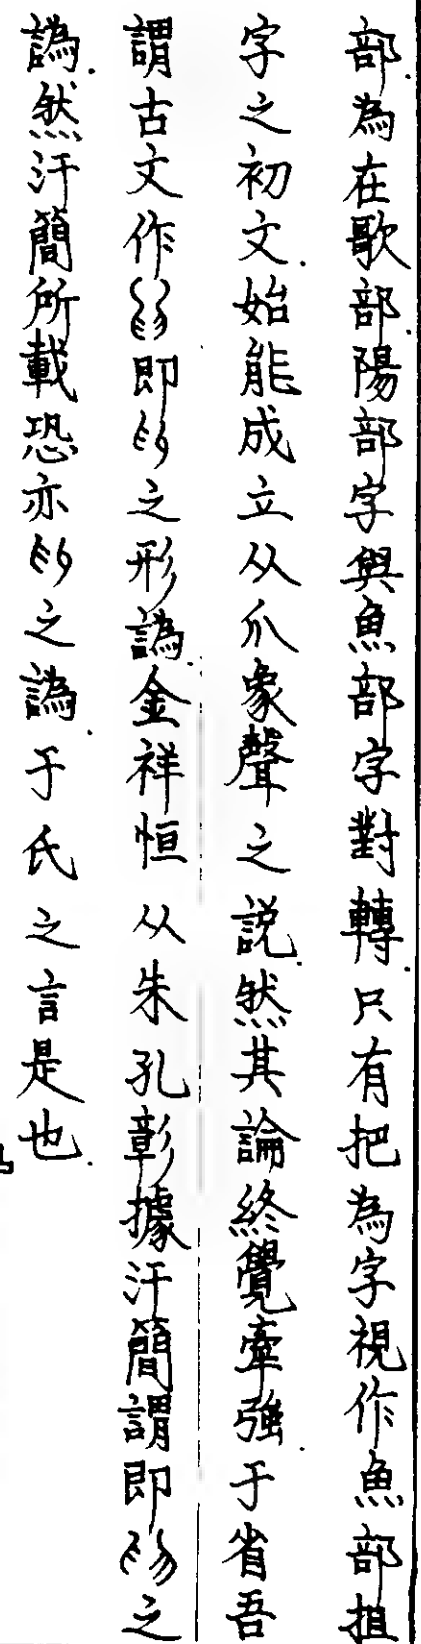 部．為在歌部．陽部字與魚部字對轉．只有把為字視作魚部担
字之初文．始能成立从爪象聲之説．然其論終覺牽強．于省吾
謂古文作即之形譌．金祥恒从朱孔彰據汗簡謂即之
譌．然汗簡所載恐亦之譌．于氏之言是也．